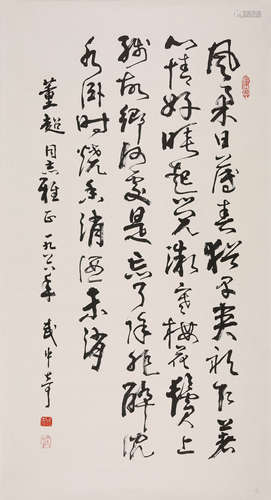 風柔日薄春猶早夾衫乍著
心情好睡起覺微寒梅花鬢上
殘故鄉何處是忘了除非醉沈
水卧时燒香消酒未消
董超同志雅正 一九八六年 武中奇